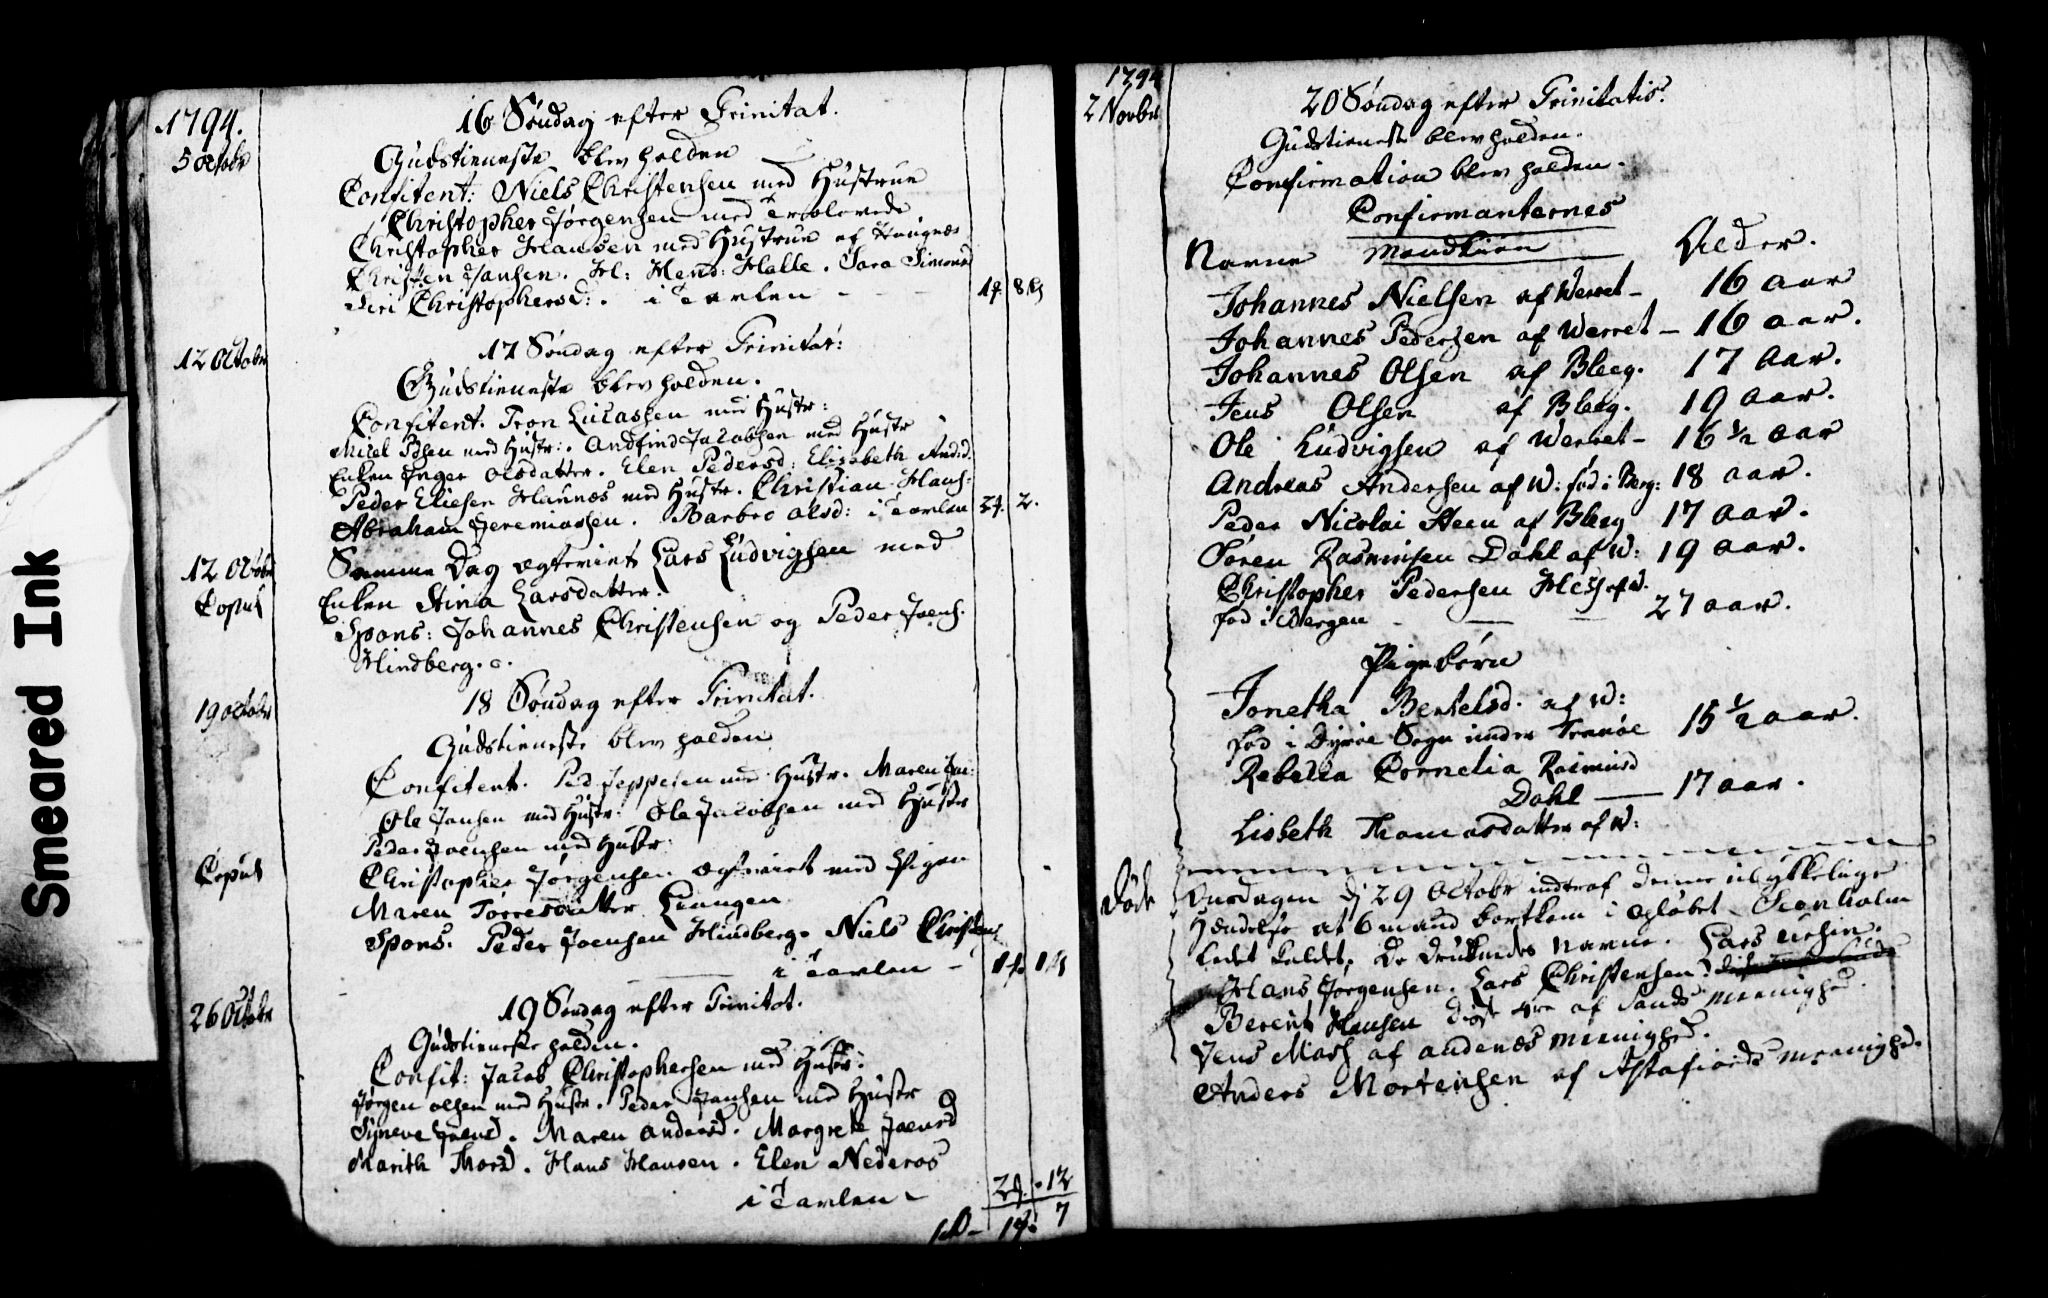 Smeared Ink
1794.
5 Octobr
16 Søndag efter Trinitat.
Gudstieneste blev holden
Confitent: Niels Christensen med Hustrue
Christopher Jørgensen med Trolovede
Christopher Hansen med Hustrue af
Christen Jansen. Hl: Hend: Halle. Sara Simonsd
Siri Christophersd: . i Tavlen - 1 8 ß
12 Octobr
17 Søndag efter Trinitat:
Gudstieneste blev holden.
Confitent. Tron Lucassen med Hustr:
Micel Ibsen med Hustr:. Andfind Jacobsen med Hustr
Enken Inger Olsdatter. Elen Pedersd: Elisabeth And:d.
Peder Eliesen Hannæs med Hustr. Christian Hans:
Abraham Jeremiassen. Barbro Olsd: i Tavlen 2 2.
12 Octobr
Samme Dag ægteviet Lars Ludvigsen med
Copul
Enken Stina Larsdatter.
Spons: Johannes Christensen og Peder Joens.
Hindberg.
19 Octobr
18 Søndag efter Trinitat.
Gudstieneste blev holden
Confitent. Ped Jeppesen med Hustr. Maren Jan:
Ole Jansen med Hustr. Ole Jacobsen med Hustr
Peder Joensen med Hustr
Copul
Christopher Jørgensen ægteviet med Pigen
Maren Torresdatter
Spons. Peder Joensen Hindberg. Niels Christens
i Tavlen - 1
26 Octobr
19 Søndag efter Trinitat.
Gudstieneste holden.
Confit: Jacob Christophersen med Hustr:
Jørgen Olsen med Hustr. Peder Jansen med Hustr
Synneve Joensd. Maren Andersd. Margrete Joensd
Marith Thord. Hans Hansen. Elen Nederaas
i Tavlen - 2 - 12
7
1794
2 Novbr
20 Søndag efter Trinitatis.
Gudstieneste blev holden.
Confirmation blev holden.
Confirmanternes
Navne Mandkiøn Alder.
Johannes Nielsen af Werret - 16 aar
Johannes Pedersen af Werret - 16 aar.
Johannes Olsen af Bleeg. 17 Aar.
Jens Olsen af Bleeg. 19 aar.
Ole Ludvigsen af Werret - 16 ½ aar
Andreas Andersen af W: fød i Berg: 18 aar.
Peder Nicolai Steen af Bleeg 17 aar.
Søren Rasmusen Dahl af W: 19 aar.
Christopher Pedersen Hess af W.
fød i Bergen - 27 aar.
Pigebørn
Jonetha Bertelsd. af W:
fød i Dyrøe Sogn under Tranøe 15 ½ aar.
Rebecca Cornelia Rasmusd
Dahl 17 aar.
Lisbeth Thomasdatter af W:
Døde
Onsdagen d 29 Octobr indtraf denne ulykkelige
Hændelse at 6 mand bortkom i
kaldet. De Druknedes Navne. Lars
Hans Jørgensen. Lars Christensen.
Berent Hansen disse ere af Sands Meenighed.
Jens Mach af Andenæs Meenighed.
Anders Mortensen af Astafiords Meenighed.